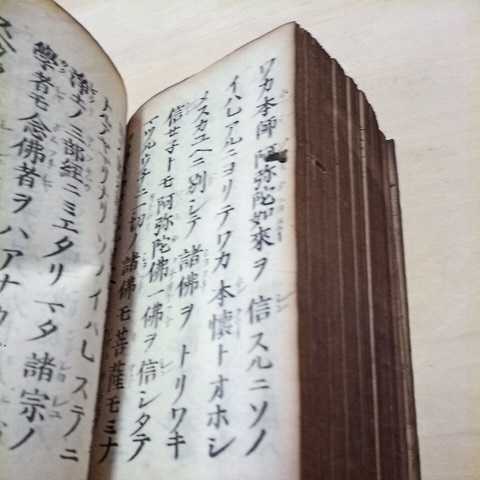 ワカ本師阿弥陀如來ヲ信スルニソノ
イハレアルニヨリテワカ本懷トオホシ
メスカユヘニ別シテ諸佛ヲトリワキ
信セ子トモ阿弥陀佛一佛ヲ信シタテ
マツルウチニ一切ノ諸佛モ菩薩モミナ
ソノイハレステニ
淨土ノ三部經ニミエタリマタ諸宗ノ
學者モ念佛者ヲハアナカ